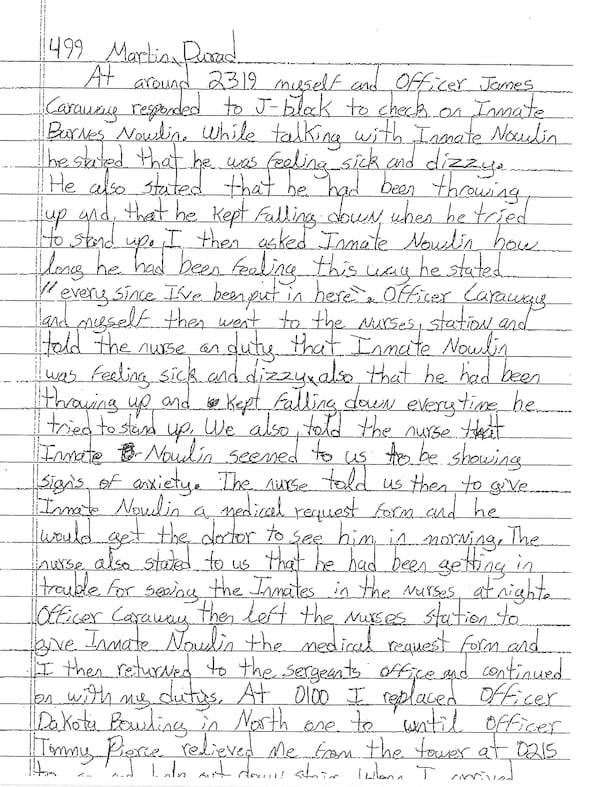 499 Martin, Durad
At around 2319 myself and Officer James
Caraway responded to J-block to check on Inmate
Barnes Nowlin. While talking with Inmate Nowlin
he stated that he was feeling sick and dizzy.
He also stated that he had been throwing
up and, that he kept falling down when he tried
to stand up. I then asked Inmate Nowlin how
long he had been feeling this way he stated
"every since I've been put in here". Officer Caraway
and myself then went to the nurses station and
told the nurse on duty that Inmate Nowlin
was feeling sick and dizzy, also that he had been
throwing up and kept falling down everytime he
tried to stand up. We also told the nurse that
Inmate Nowlin seemed to us to be showing
signs of anxiety. The nurse told us then to give
Inmate Nowlin a medical request form and he
would get the doctor to see him in morning. The
nurse also stated to us that he had been getting in
trouble for seeing the Inmates in the nurses at night.
Officer Caraway then left the nurses station to
give Inmate Nowlin the medical request form and
I then returned to the sergeants office and continued
on with my dutys. At 0100 I replaced Officer
Dakota Bowling in North one to until Officer
Tommy Pierce relieved me from the tower at 0215
to go and help out down stairs. When I arrived